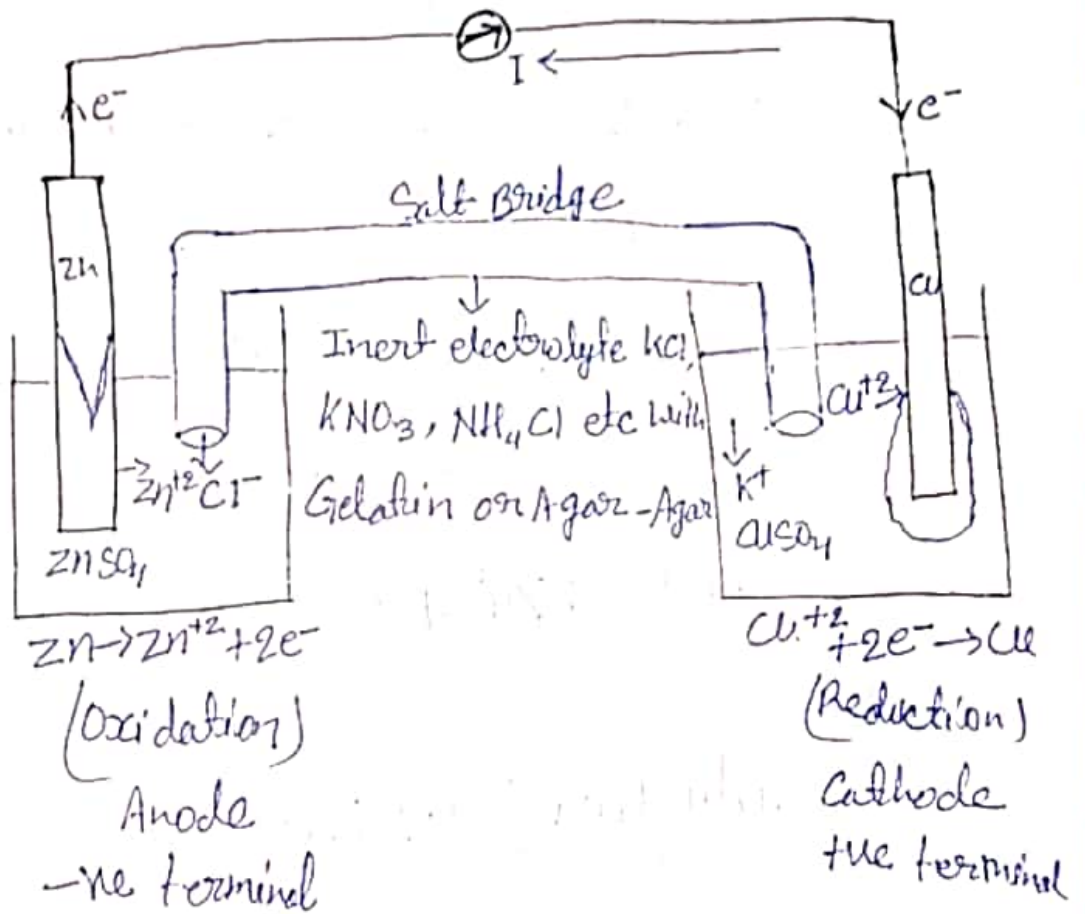 I
e⁻
e⁻
Salt Bridge
Zn
Cu
Inert electrolyte KCl,
KNO₃, NH₄Cl etc with
Gelatin or Agar-Agar
Cu⁺²
Zn⁺² Cl⁻
K⁺
ZnSO₄
CuSO₄
Zn→Zn⁺²+2e⁻
(Oxidation)
Anode
-ve terminal
Cu⁺²+2e⁻→Cu
(Reduction)
Cathode
+ve terminal